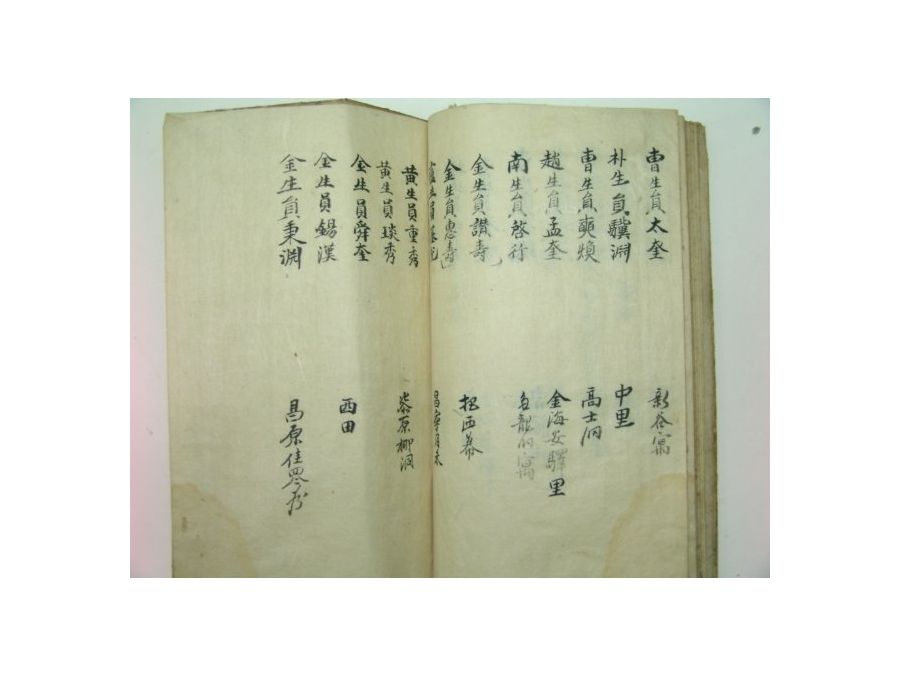 曺生員太奎 新谷寓
朴生員驥淵 中里
曺生員奭煥 高士洞
趙生員孟奎 金海安驛里
南生員啓行 龍 寓
金生員讚壽 西幕
金生員惠壽 昌寧
生員
黃生員重秀 漆原柳洞
黃生員琰秀
金生員舜奎 西田
金生員錫漢
金生員秉淵 昌原佳